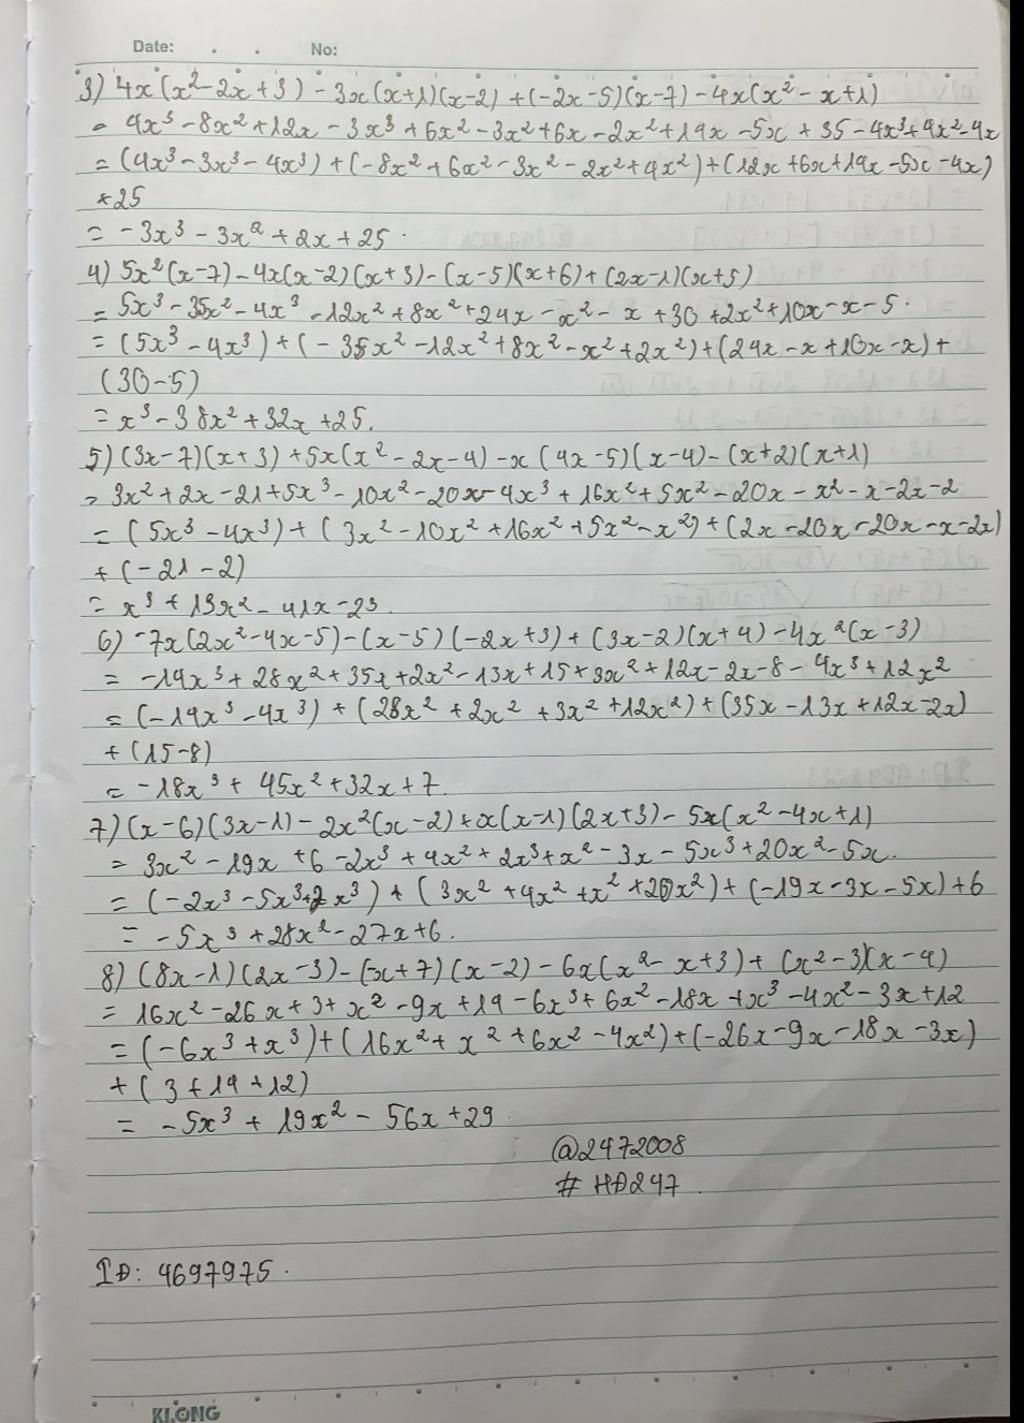 Date: . . No:
3) 4x(x² - 2x + 3) - 3x(x+1)(x-2) + (-2x-5)(x-7) - 4x(x² - x+1)
= 4x³ - 8x² + 12x - 3x³ + 6x² - 3x² + 6x - 2x² + 14x - 5x + 35 - 4x³ + 4x² - 4x
= (4x³ - 3x³ - 4x³) + (-8x² + 6x² - 3x² - 2x² + 4x²) + (12x + 6x + 14x - 5x - 4x)
+25
= -3x³ - 3x² + 2x + 25.
4) 5x²(x-7) - 4x(x-2)(x+3) - (x-5)(x+6) + (2x-1)(x+5)
= 5x³ - 35x² - 4x³ - 12x² + 8x² + 24x - x² - x + 30 + 2x² + 10x - x - 5.
= (5x³ - 4x³) + (-35x² - 12x² + 8x² - x² + 2x²) + (24x - x + 10x - x) +
(30-5)
= x³ - 38x² + 32x + 25.
5) (3x-7)(x+3) + 5x(x² - 2x - 4) - x(4x-5)(x-4) - (x+2)(x+1)
= 3x² + 2x - 21 + 5x³ - 10x² - 20x - 4x³ + 16x² + 5x² - 20x - x² - x - 2x - 2
= (5x³ - 4x³) + (3x² - 10x² + 16x² + 5x² - x²) + (2x - 20x - 20x - x - 2x)
+ (-21 - 2)
= x³ + 13x² - 41x - 23.
6) -7x(2x² - 4x - 5) - (x-5)(-2x+3) + (3x-2)(x+4) - 4x²(x-3)
= -14x³ + 28x² + 35x + 2x² - 13x + 15 + 3x² + 12x - 2x - 8 - 4x³ + 12x²
= (-14x³ - 4x³) + (28x² + 2x² + 3x² + 12x²) + (35x - 13x + 12x - 2x)
+ (15-8)
= -18x³ + 45x² + 32x + 7.
7) (x-6)(3x-1) - 2x²(x-2) + x(x-1)(2x+3) - 5x(x² - 4x+1)
= 3x² - 19x + 6 - 2x³ + 4x² + 2x³ + x² - 3x - 5x³ + 20x² - 5x.
= (-2x³ - 5x³ + 2x³) + (3x² + 4x² + x² + 20x²) + (-19x - 3x - 5x) + 6
= -5x³ + 28x² - 27x + 6.
8) (8x-1)(2x-3) - (-x+7)(x-2) - 6x(x² - x+3) + (x²-3)(x-4)
= 16x² - 26x + 3 + x² - 9x + 14 - 6x³ + 6x² - 18x + x³ - 4x² - 3x + 12
= (-6x³ + x³) + (16x² + x² + 6x² - 4x²) + (-26x - 9x - 18x - 3x)
+ (3 + 14 + 12)
= -5x³ + 19x² - 56x + 29.
@2472008
# HĐ247.
IĐ: 4697975.
KLONG